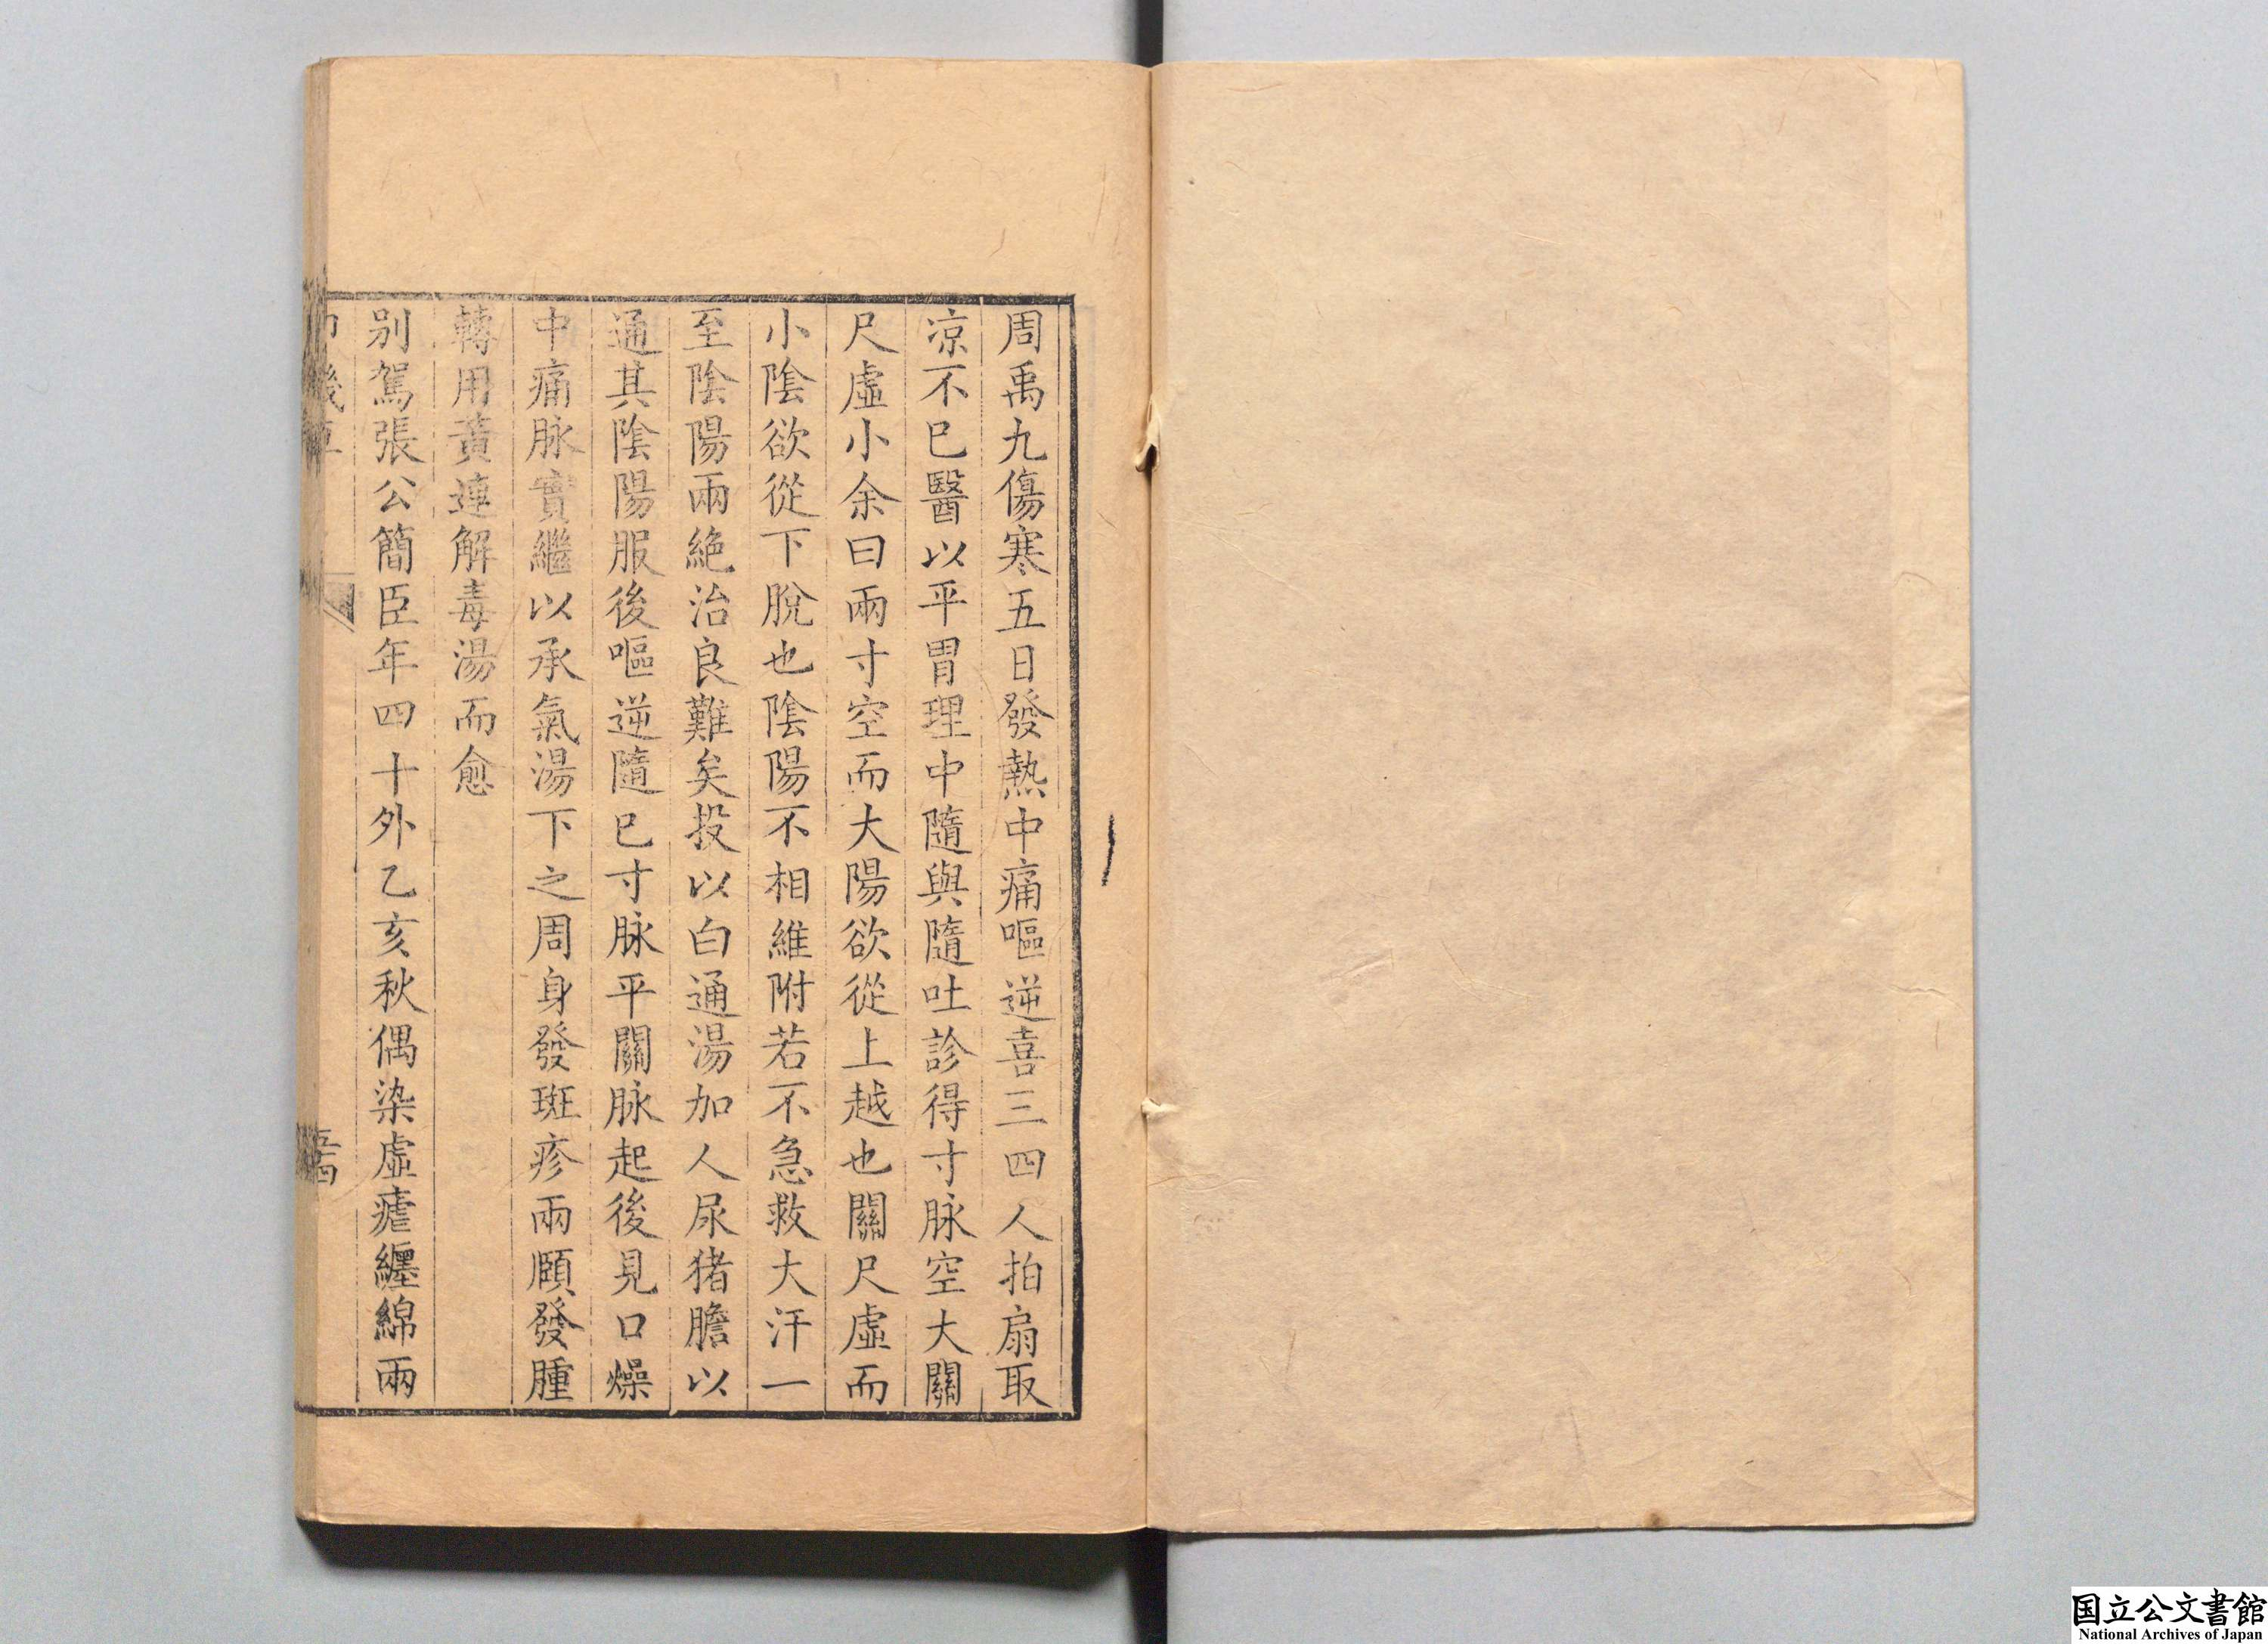 周禹九傷寒五日發熱中痛嘔逆喜三四人拍扇取
凉不已醫以平胃理中隨與隨吐診得寸脉空大關
尺虛小余曰兩寸空而大陽欲從上越也關尺虛而
小陰欲從下脫也陰陽不相維附若不急救大汗一
至陰陽兩絶治良難矣投以白通湯加人尿猪膽以
通其陰陽服後嘔逆隨已寸脉平關脉起後見口燥
中痛脉實繼以承氣湯下之周身發斑疹兩頤發腫
轉用黃連解毒湯而愈
別駕張公簡臣年四十外乙亥秋偶染虛瘧纏綿兩
五十四
国立公文書館
National Archives of Japan